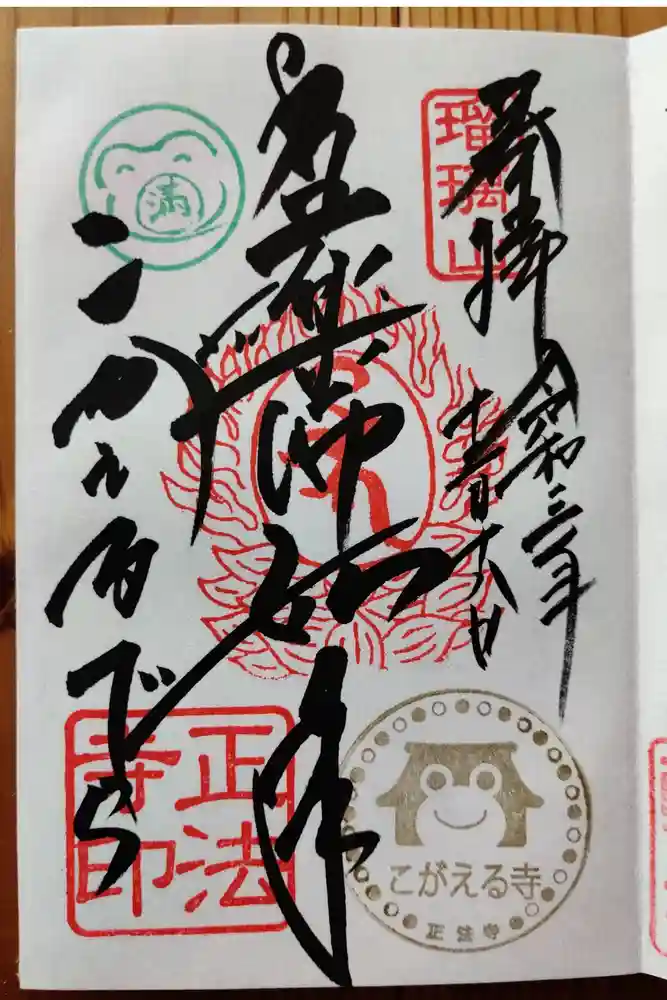 瑠璃山
奉拝
令和三年
十六日
薬師如来
満
こがえるでら
正法
寺印
こがえる寺
正法寺